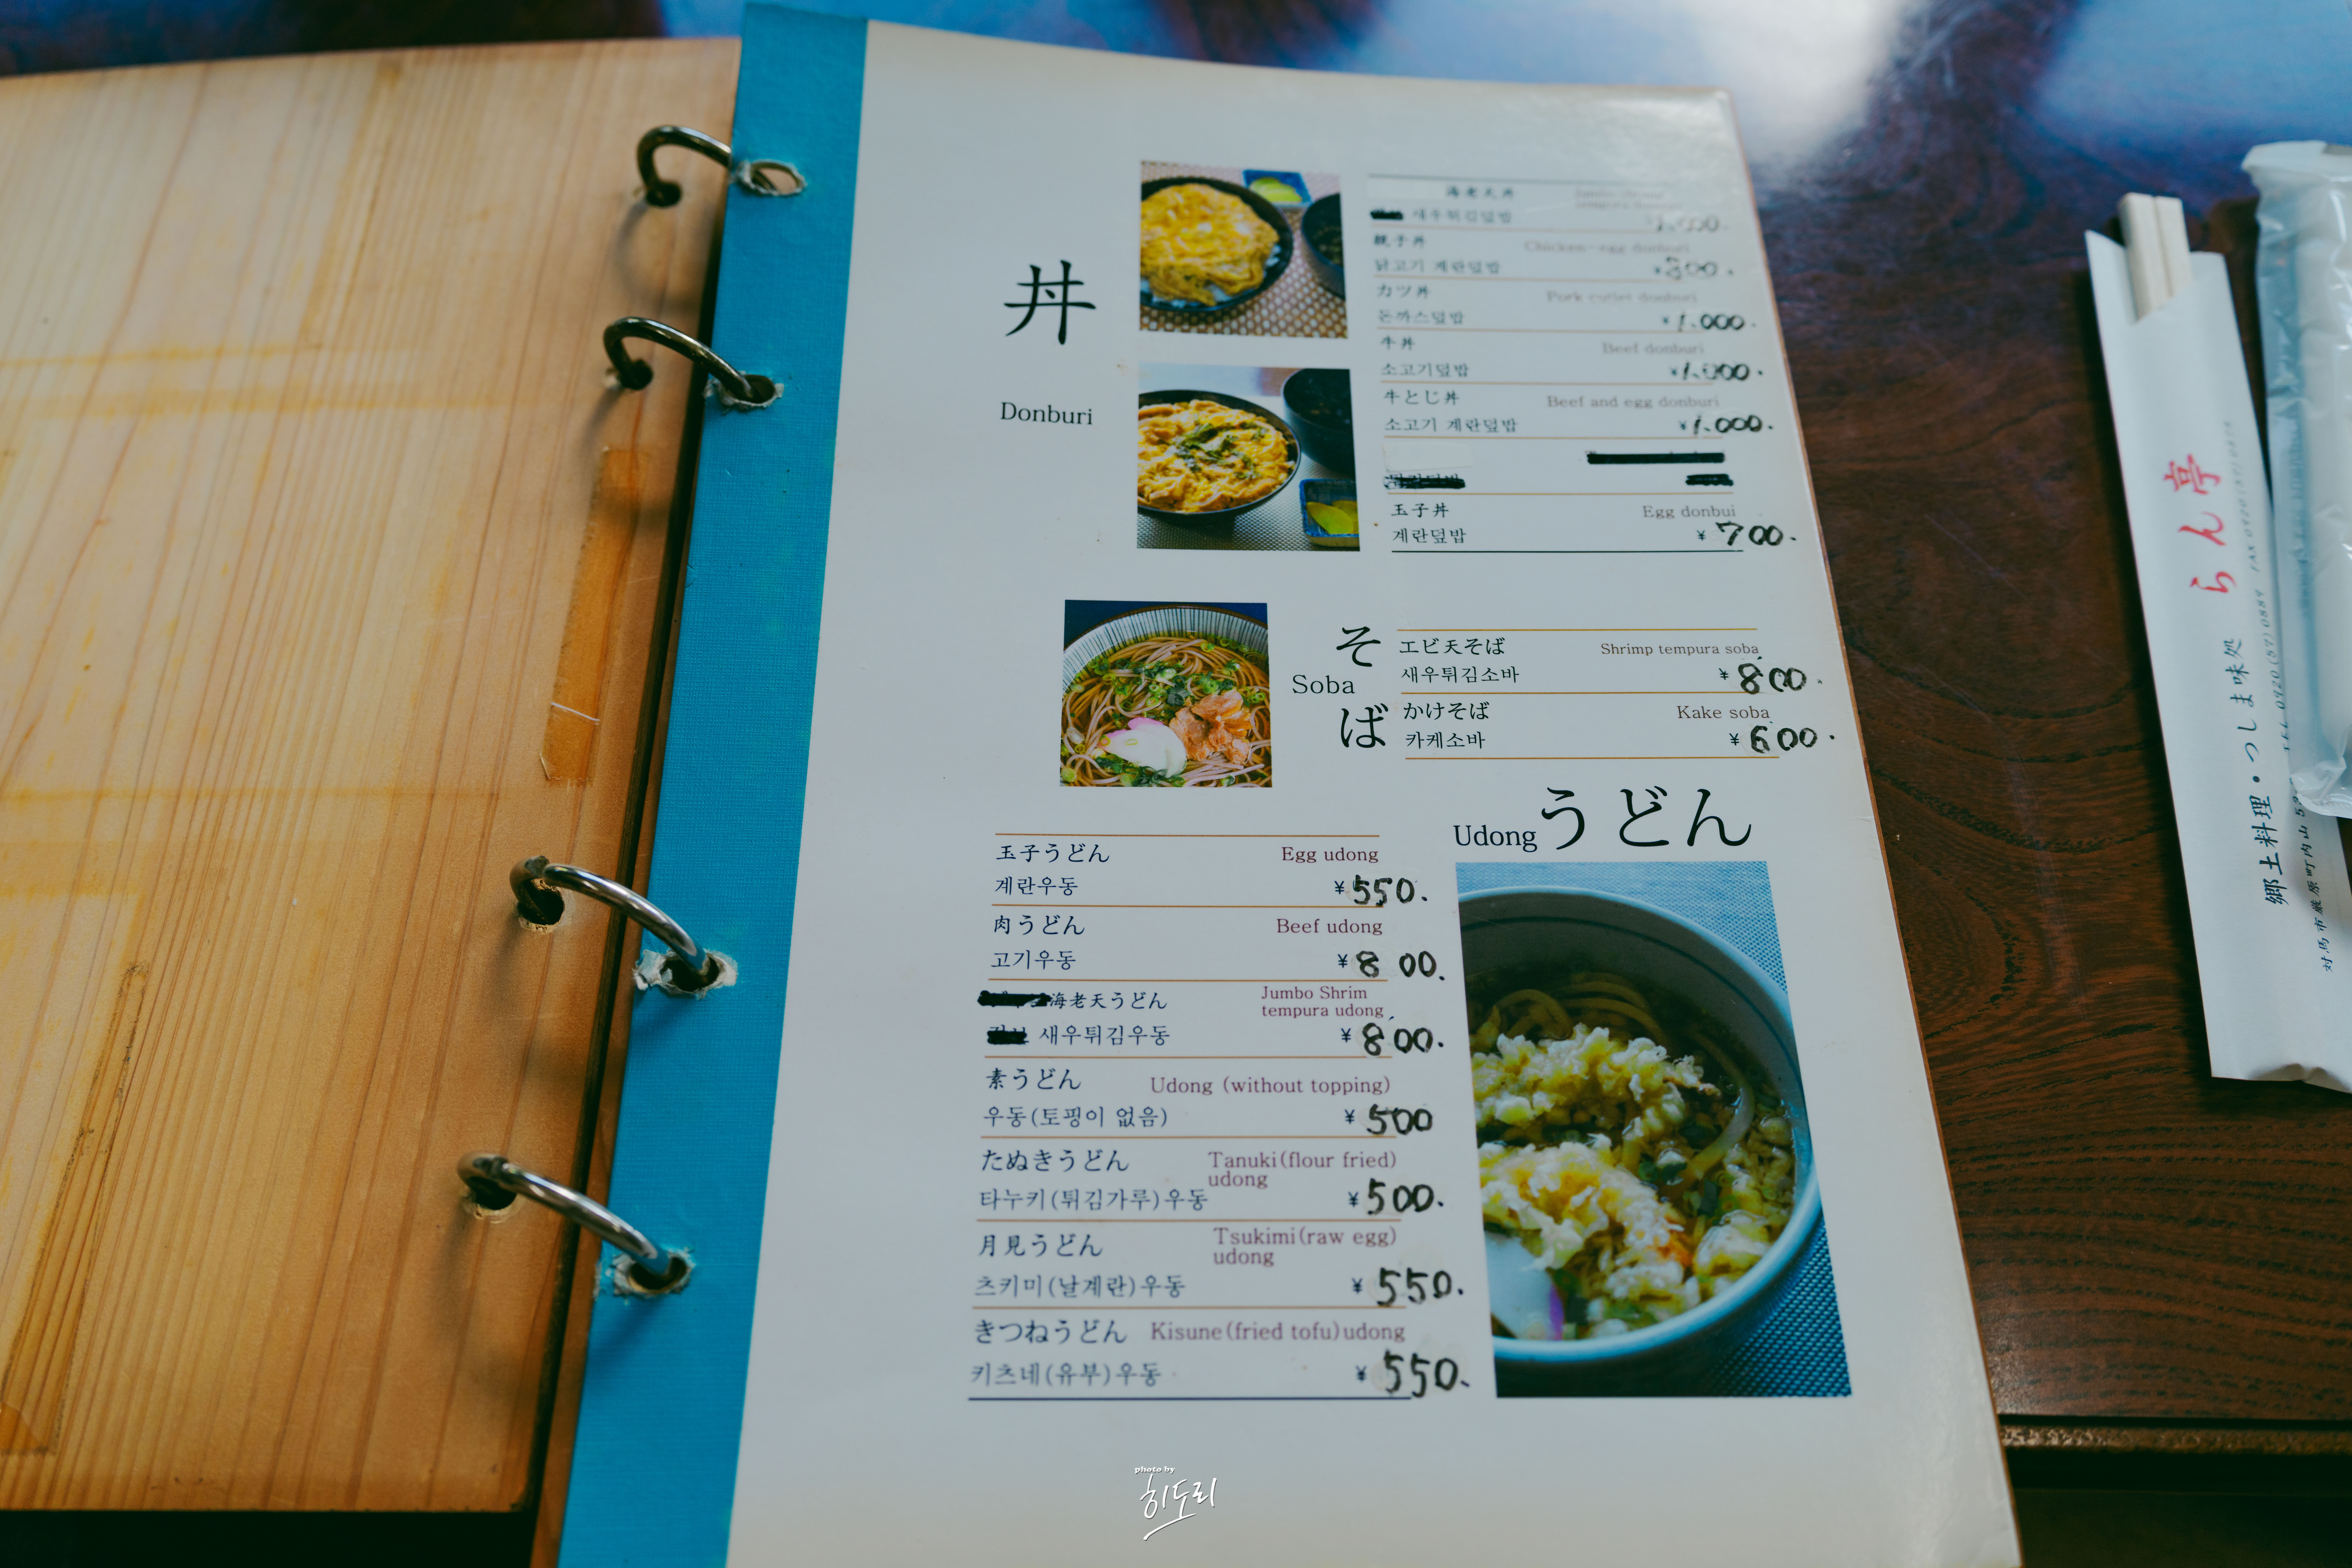 丼
Donburi
海老天丼
새우튀김덮밥 1,000.
親子丼 Chicken-egg donburi
닭고기 계란덮밥 ¥
カツ丼 Pork cutlet donburi
돈까스덮밥 ¥1,000.
牛丼 Beef donburi
소고기덮밥 ¥1,000.
牛とじ丼 Beef and egg donburi
소고기 계란덮밥 ¥1,000.
玉子丼 Egg donbui
계란덮밥 ¥700.
そば
Soba
エビ天そば Shrimp tempura soba
새우튀김소바 ¥800.
かけそば Kake soba
카케소바 ¥600.
Udong うどん
玉子うどん Egg udong
계란우동 ¥550.
肉うどん Beef udong
고기우동 ¥800.
海老天うどん Jumbo Shrim
tempura udong
새우튀김우동 ¥800.
素うどん Udong (without topping)
우동(토핑이 없음) ¥500
たぬきうどん Tanuki(flour fried)
udong
타누키(튀김가루)우동 ¥500.
月見うどん Tsukimi(raw egg)
udong
츠키미(날계란)우동 ¥550.
きつねうどん Kisune(fried tofu)udong
키츠네(유부)우동 ¥550.
郷土料理・つしま味処 らん亭
対馬市厳原町内山
TEL 0920(57)0889
photo by
히도리